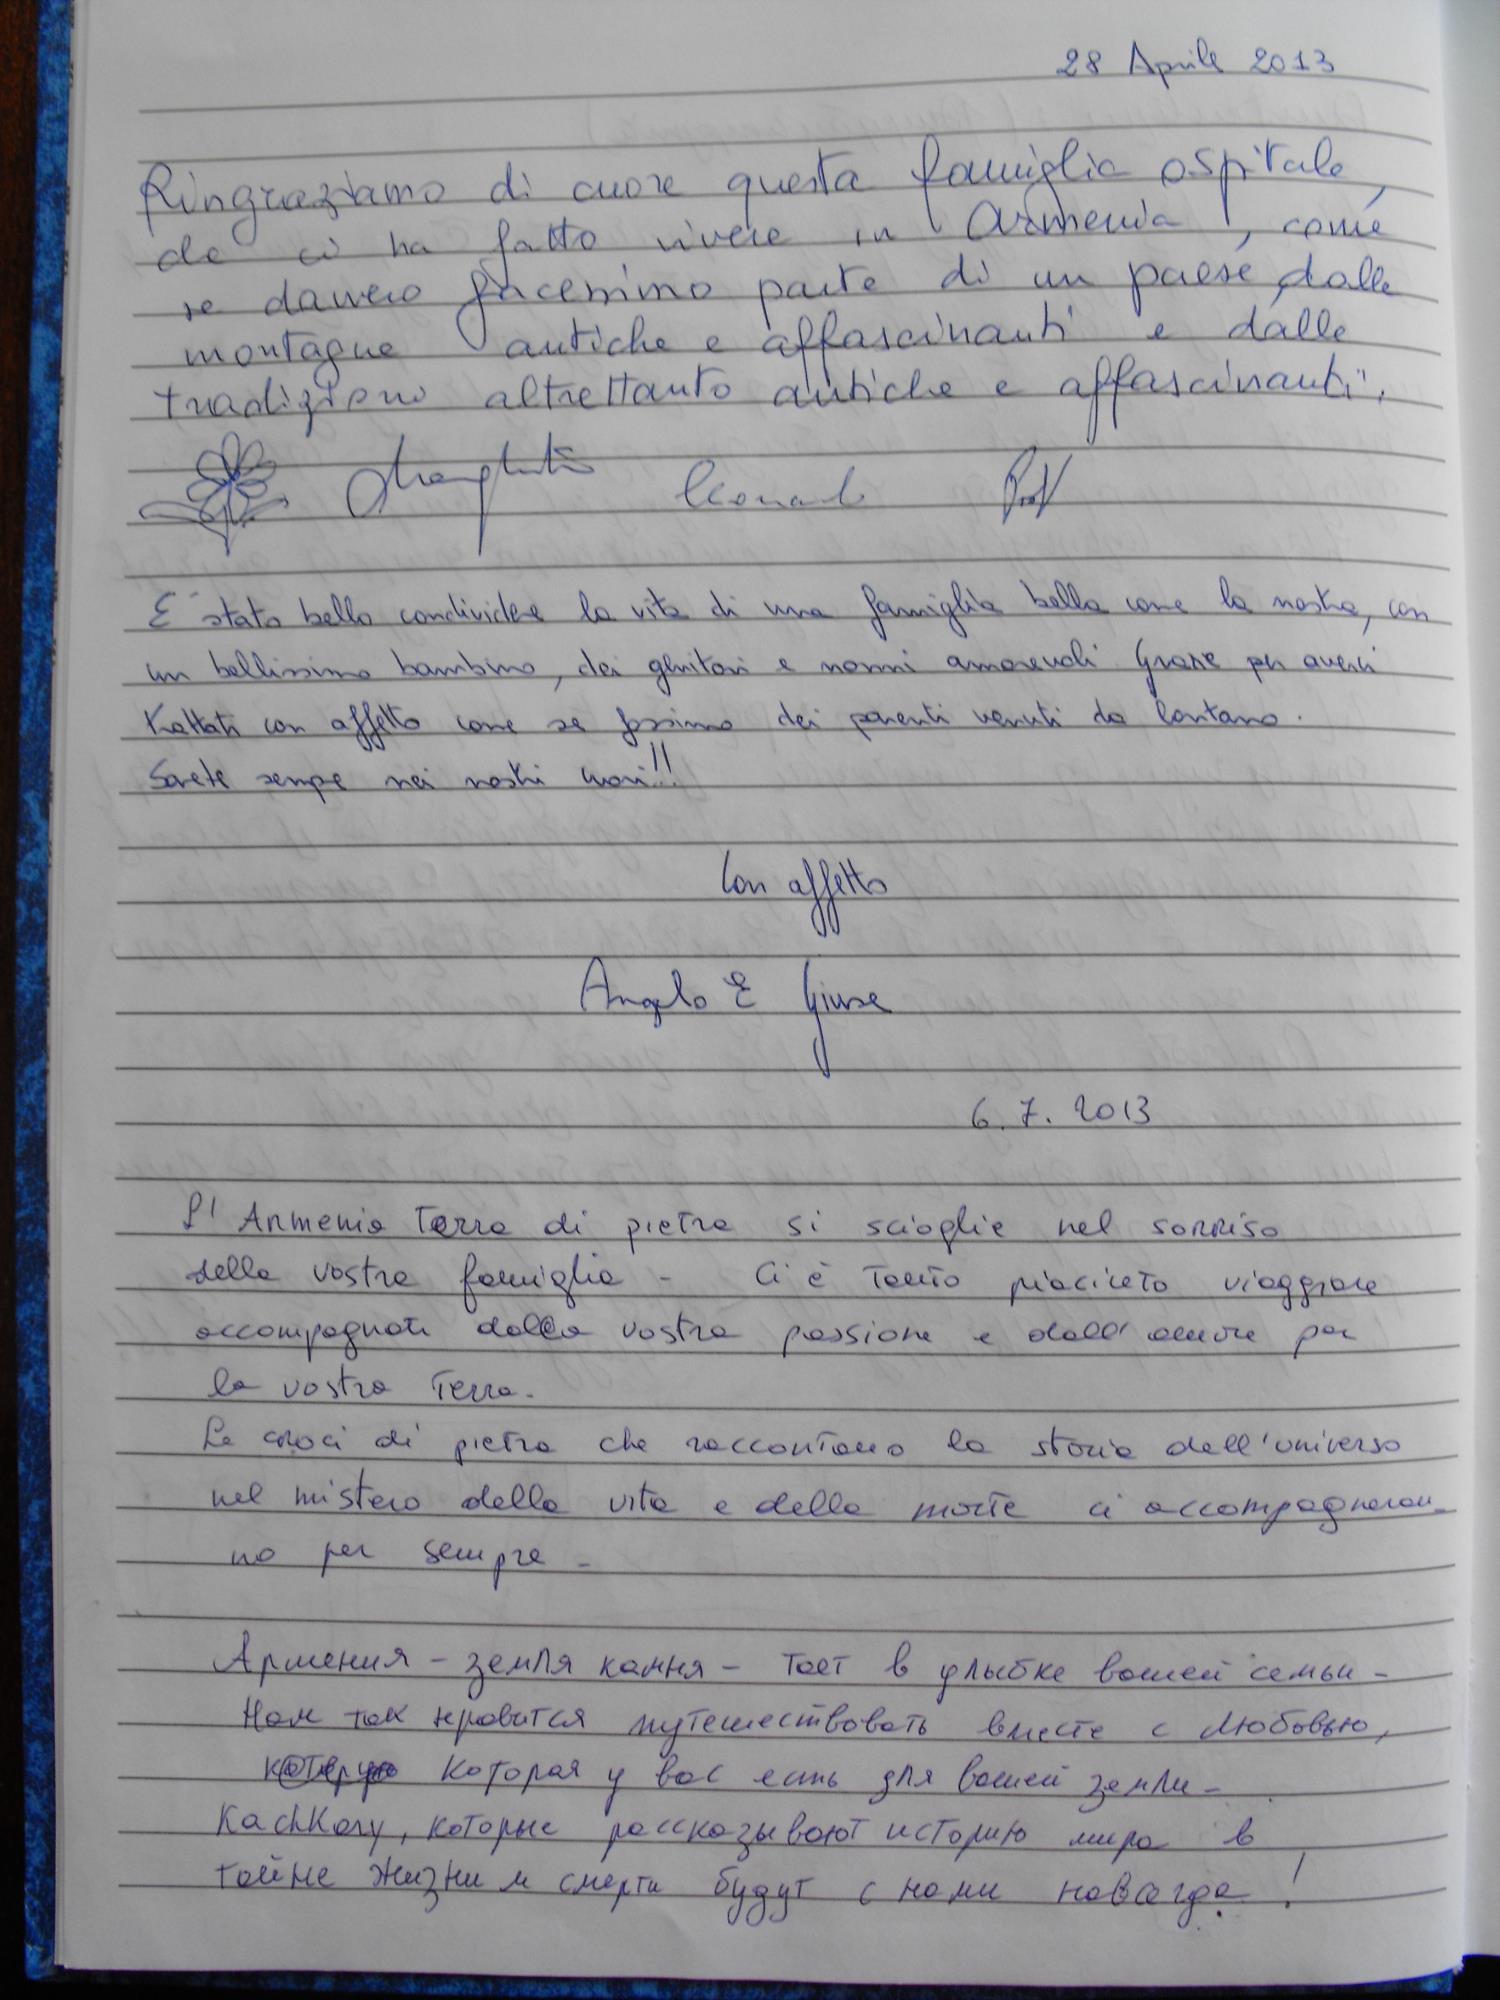 28 Aprile 2013
Ringraziamo di cuore questa famiglia ospitale,
che ci ha fatto vivere in Armenia, come
se davvero facessimo parte di un paese dalle
montagne antiche e affascinanti e dalle
tradizioni altrettanto antiche e affascinanti.
Leonardo
E' stato bello condividere la vita di una famiglia bella come la nostra, con
un bellissimo bambino, dei genitori e nonni amorevoli. Grazie per averci
trattati con affetto come se fossimo dei parenti venuti da lontano.
Sarete sempre nei nostri cuori!!
Con affetto
Angelo E Giusse
6.7.2013
L'Armenia terra di pietra si scioglie nel sorriso
della vostra famiglia - Ci è tanto piaciuto viaggiare
accompagnati dalla vostra passione e dall'amore per
la vostra terra.
Le croci di pietra che raccontano la storia dell'universo
nel mistero della vita e della morte ci accompagneran-
no per sempre -
Армения - земля камня - тает в улыбке вашей семьи -
Нам так нравится путешествовать вместе с любовью,
которая у вас есть для вашей земли -
Kachkary, которые рассказывают историю мира в
тайне жизни и смерти будут с нами навсегда!